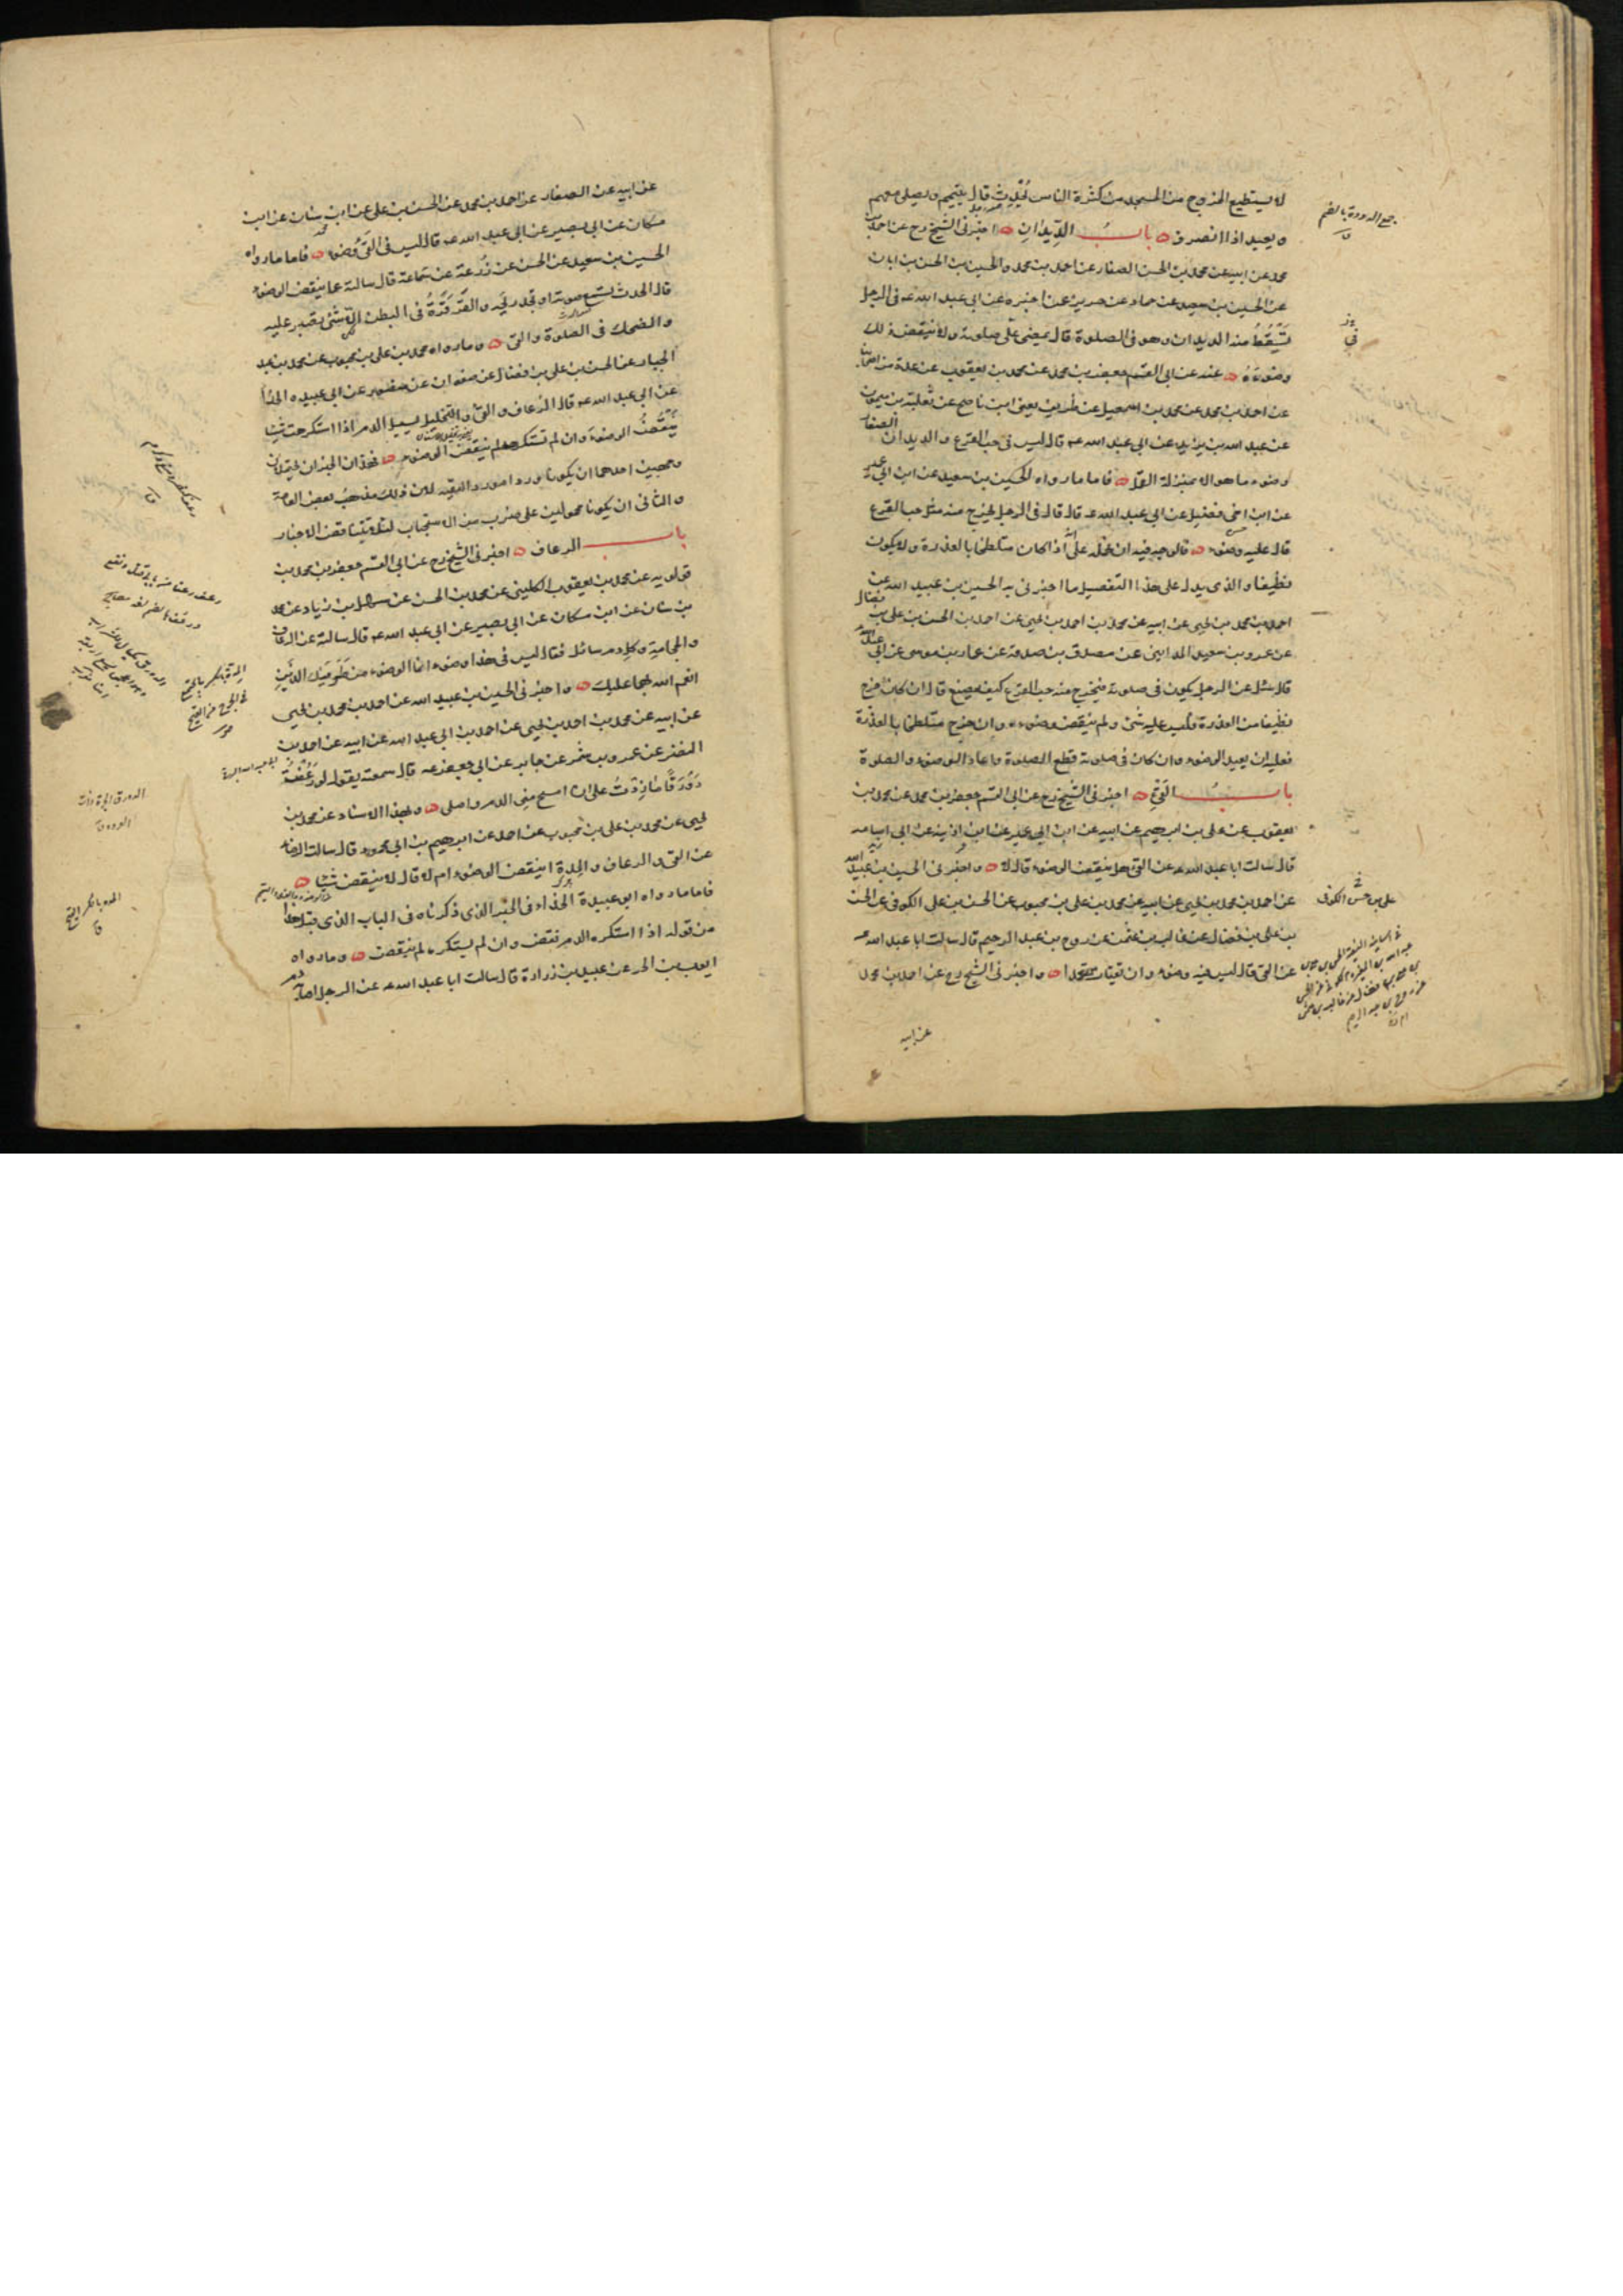 لا يستطيع الخروج من المسجد من كثرة الناس يُحْدِث قال يتيمم ويصلى معهم
ويعيد اذا انصرف باب الدِّيدَانِ اخبرنى الشيخ رح عن احمد بن
محمد عن ابيه عن محمد بن الحسن الصفار عن احمد بن محمد والحسين بن الحسن بن ابان
عن الحسين بن سعيد عن حماد عن حريز عن اخبره عن ابى عبد الله عه فى الرجل
يَسْقُطُ منه الديدان وهو فى الصلوة قال يمضى على صلوته ولا ينقض ذلك
وضوءه عنه عن ابى القسم جعفر بن محمد عن محمد بن يعقوب عن عدة من اصحابنا
عن احمد بن محمد عن محمد بن اسمعيل عن ظريف يعنى ابن ناصح عن ثعلبة بن ميمون
عن عبد الله بن يزيد عن ابى عبد الله عه قال ليس فى حب القرع والديدان الصغار
وضوء ما هو الا بمنزلة القمل فاما ما رواه الحسين بن سعيد عن ابن ابى عمير
عن ابن اخى فضيل عن ابى عبد الله عه قال قال فى الرجل يخرج منه مثل حب القرع
قال عليه وضوء فالوجه فيه ان نحمله على انه اذا كان متلطخا بالعذرة ولا يكون
نظيفا والذى يدل على هذا التفصيل ما اخبرنى به الحسين بن عبيد الله عن
احمد بن محمد بن يحيى عن ابيه عن محمد بن احمد بن يحيى عن احمد بن الحسن بن على بن فضال
عن عمرو بن سعيد المداينى عن مصدق بن صدقة عن عمار بن موسى عن ابى عبد الله عه
قال سئل عن الرجل يكون فى صلوته فيخرج منه حب القرع كيف يصنع قال ان كان خرج
نظيفا من العذرة فليس عليه شئ ولم ينقض وضوءه وان خرج متلطخا بالعذرة
فعليه ان يعيد الوضوء وان كان فى صلوته قطع الصلوة واعاد الوضوء والصلوة
باب القَئِ اخبرنى الشيخ رح عن ابى القسم جعفر بن محمد عن محمد بن
يعقوب عن على بن ابرهيم عن ابيه عن ابن ابى عمير عن ابن اذينة عن ابى اسامه
قال سالت ابا عبد الله عه عن القئ هل ينقض الوضوء قال لا واخبرنى الحسين بن عبيد الله
عن احمد بن محمد بن يحيى عن ابيه عن محمد بن على بن محبوب عن الحسن بن على الكوفى عن الحسن
بن على بن فضال عن غالب بن عثمن عن روح بن عبد الرحيم قال سالت ابا عبد الله عه
عن القئ قال ليس فيه وضوء وان تقيات متعمدا واخبرنى الشيخ رح عن احمد بن محمد
عن ابيه
جمع الدودة بالضم
عن ابيه عن الصفار عن احمد بن محمد عن الحسن بن على عن ابن سنان عن ابن
مسكان عن ابى بصير عن ابى عبد الله عه قال ليس فى القَئ وُضوء فاما ما رواه
الحسين بن سعيد عن الحسن عن زُرعة عن سماعة قال سالته عما ينقض الوضوء
قال الحدث تسمع صوته او تجد ريحَه والقَرقَرَةُ فى البطن الا شئ يصبر عليه
والضحك فى الصلوة والقئ وما رواه محمد بن على بن محبوب عن محمد بن عبد
الجبار عن الحسن بن على بن فضال عن صفوان عن منصور عن ابى عبيده الحذا
عن ابى عبد الله عه قال الرعاف والقئ والتخليل يسيل الدم اذا استكرهت شيئا
يَنْقُضُ الوضوءَ وان لم تستكرهه لم ينقض الوضوء فهذان الخبران يحتملان
وجهين احدهما ان يكونا وردا مورد التقيه لان ذلك مذهبُ بعض العامة
والثانى ان يكونا محمولين على ضرب من الاستحباب لئلا يتناقض الاخبار
باب الرعاف اخبرنى الشيخ رح عن ابى القسم جعفر بن محمد بن
قولويه عن محمد بن يعقوب الكلينى عن محمد بن الحسن عن سهل بن زياد عن محمد
بن سنان عن ابن مسكان عن ابى بصير عن ابى عبد الله عه قال سالته عن الرعاف
والحجامة وكل دم سائل فقال ليس فى هذا وضوء انما الوضوء من طَرَفَيك الذَين
انعم الله بهما عليك واخبرنى الحسين بن عبيد الله عن احمد بن محمد بن يحيى
عن ابيه عن محمد بن احمد بن يحيى عن احمد بن ابى عبد الله عن ابيه عن احمد بن
النضر عن عمرو بن شمر عن جابر عن ابى جعفر عه قال سمعته يقول لو رَعُفْتُ
دَوْرَقًا ما زِدْتُ على ان امسح منى الدم واصلى وبهذا الاسناد عن محمد بن
يحيى عن محمد بن على بن محبوب عن احمد عن ابرهيم بن ابى محمود قال سالت الرضا
عن القئ والرعاف والمِدة اينقض الوضوء ام لا قال لا ينقض شيئا
فاما ما رواه ابو عبيدة الحذاء فى الخبر الذى ذكرناه فى الباب الذى قبل هذا
من قوله اذا استكره الدم نقض وان لم يستكره لم ينقض وما رواه
ايوب بن الحر عن عبيد بن زرارة قال سالت ابا عبد الله عه عن الرجل اصابه